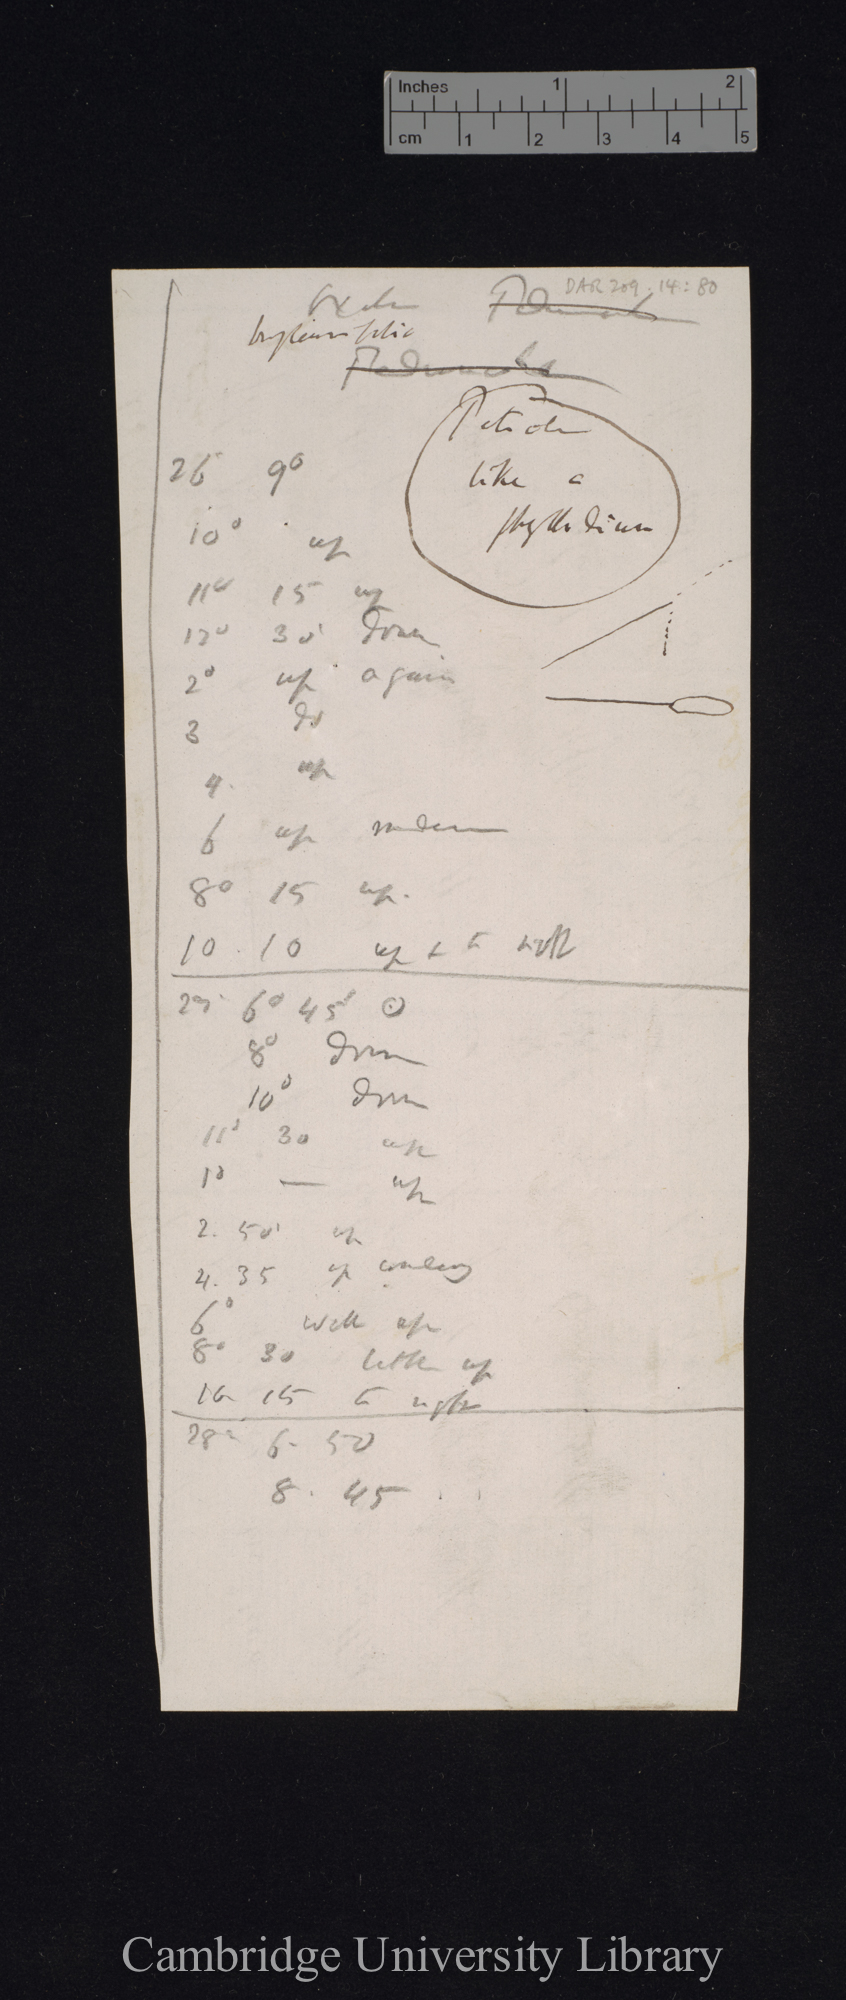 Inches 1 2
cm 1 2 3 4 5
DAR 209.14: 80
Oxalis
bupleurifolia
Peduncle
Petiole
like a
phyllodium
26 9°
10° up
11° 15 up
12° 30' down
2° up again
3 do
4. up
6 up
8° 15 up.
10 . 10 up & to
27 6° 45' ⊙
8° down
10° down
11° 30 up
1° — up
2. 50' up
4. 35 up
6° well up
8° 30 little up
10 15 to right
28 6. 50
8. 45
Cambridge University Library